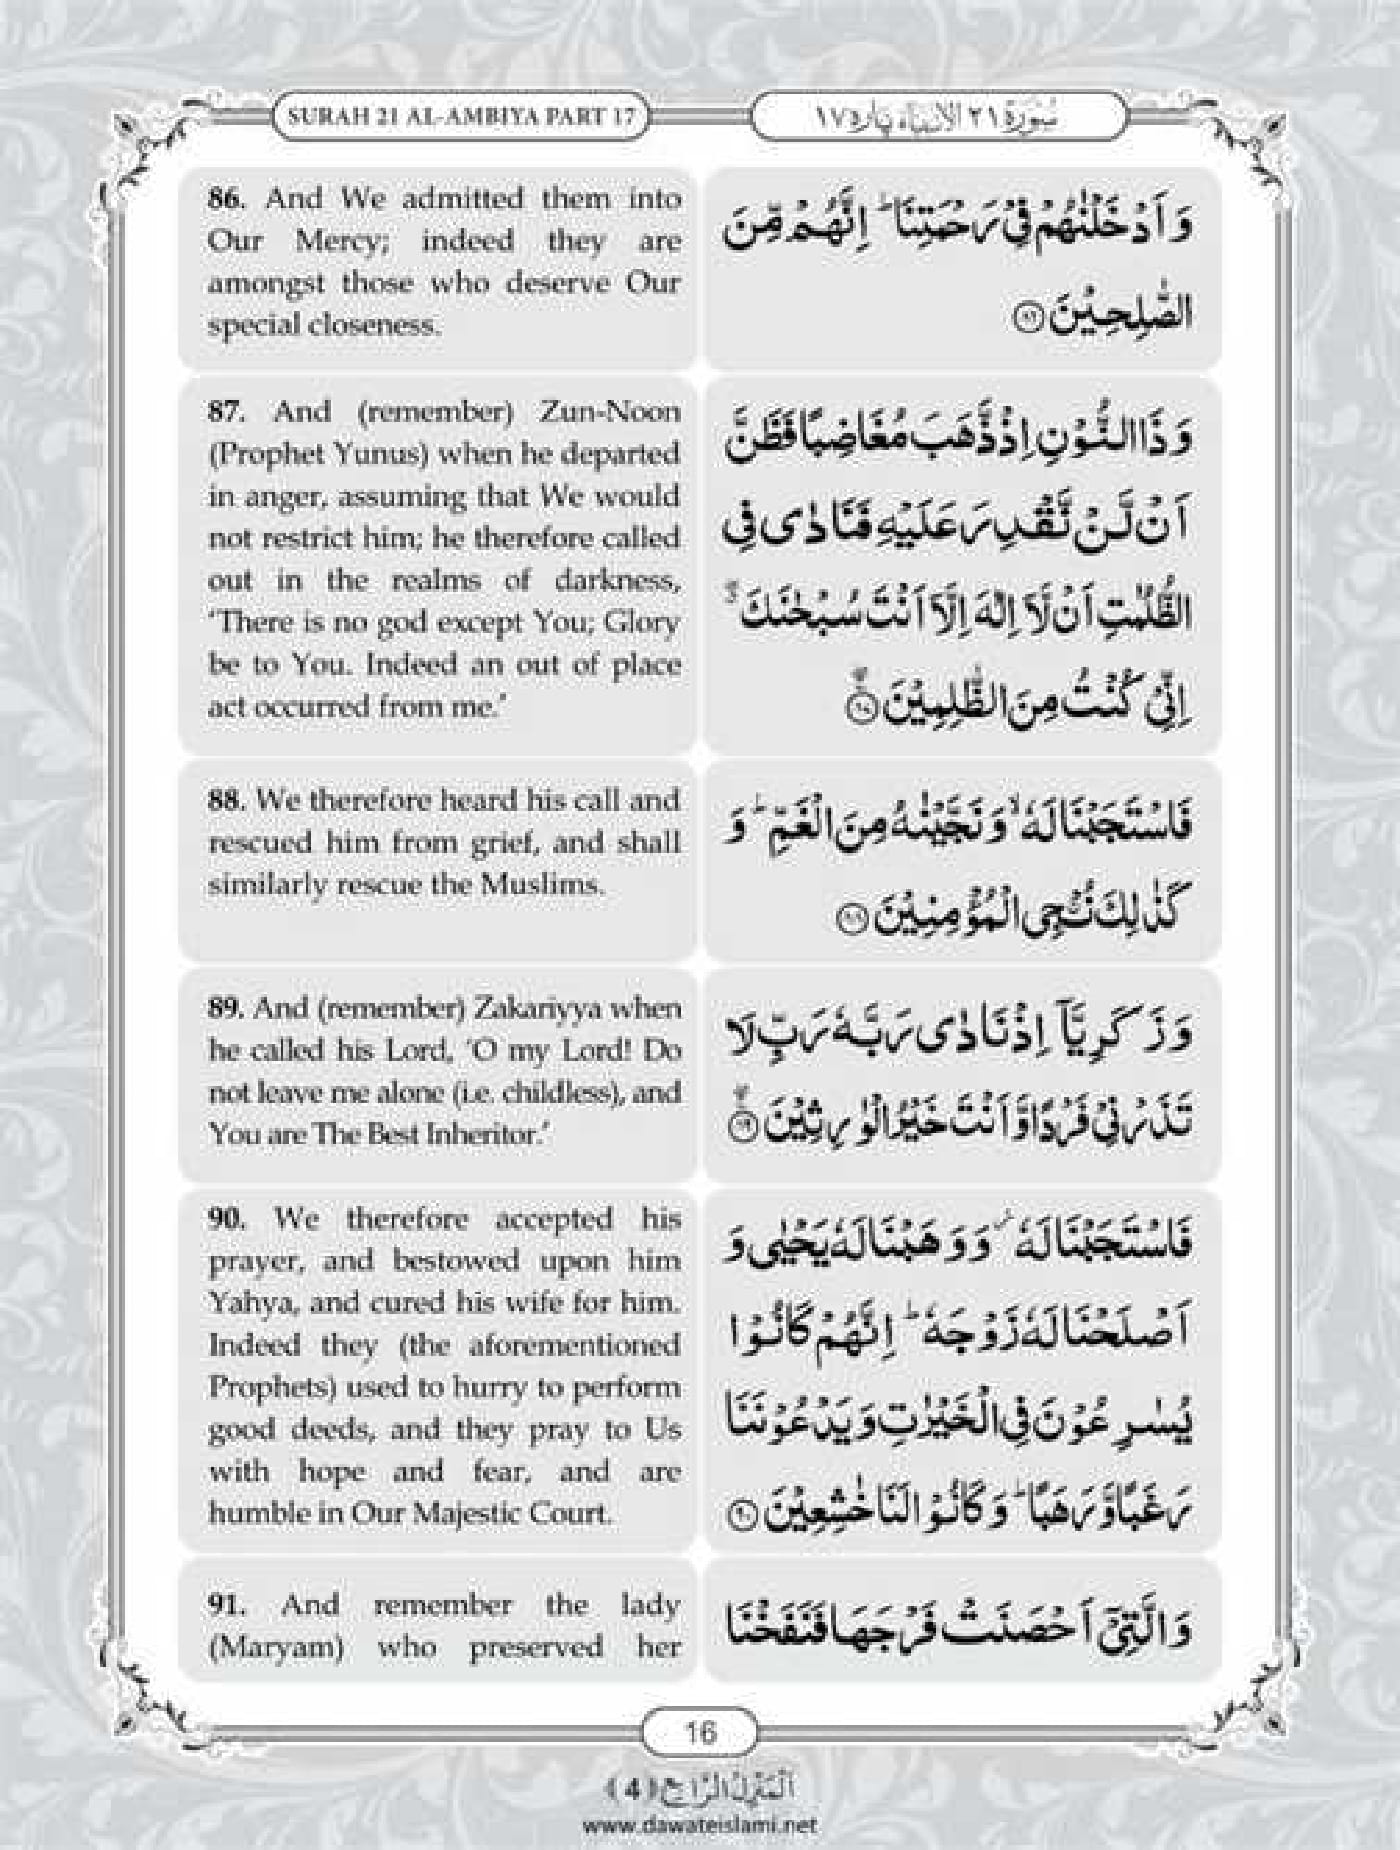 SURAH 21 AL-AMBIYA PART 17
سُوْرَة ٢١ الْاَنْبِيَآء پاره ١٧
86. And We admitted them into
Our Mercy; indeed they are
amongst those who deserve Our
special closeness.
وَ اَدْخَلْنٰهُمْ فِیْ رَحْمَتِنَا ؕ اِنَّهُمْ مِّنَ
الصّٰلِحِیْنَ ﴿۸۶﴾
87. And (remember) Zun-Noon
(Prophet Yunus) when he departed
in anger, assuming that We would
not restrict him; he therefore called
out in the realms of darkness,
‘There is no god except You; Glory
be to You. Indeed an out of place
act occurred from me.’
وَ ذَا النُّوْنِ اِذْ ذَّهَبَ مُغَاضِبًا فَظَنَّ
اَنْ لَّنْ نَّقْدِرَ عَلَیْهِ فَنَادٰی فِی
الظُّلُمٰتِ اَنْ لَّاۤ اِلٰهَ اِلَّاۤ اَنْتَ سُبْحٰنَكَ ۖۗ
اِنِّیْ كُنْتُ مِنَ الظّٰلِمِیْنَ ﴿۸۷﴾
88. We therefore heard his call and
rescued him from grief, and shall
similarly rescue the Muslims.
فَاسْتَجَبْنَا لَهٗ ۙ وَ نَجَّیْنٰهُ مِنَ الْغَمِّ ؕ وَ
كَذٰلِكَ نُـْۨجِی الْمُؤْمِنِیْنَ ﴿۸۸﴾
89. And (remember) Zakariyya when
he called his Lord, ‘O my Lord! Do
not leave me alone (i.e. childless), and
You are The Best Inheritor.’
وَ زَكَرِیَّاۤ اِذْ نَادٰی رَبَّهٗ رَبِّ لَا
تَذَرْنِیْ فَرْدًا وَّ اَنْتَ خَیْرُ الْوٰرِثِیْنَ ﴿۸۹﴾
90. We therefore accepted his
prayer, and bestowed upon him
Yahya, and cured his wife for him.
Indeed they (the aforementioned
Prophets) used to hurry to perform
good deeds, and they pray to Us
with hope and fear, and are
humble in Our Majestic Court.
فَاسْتَجَبْنَا لَهٗ ؗ وَ وَهَبْنَا لَهٗ یَحْیٰی وَ
اَصْلَحْنَا لَهٗ زَوْجَهٗ ؕ اِنَّهُمْ كَانُوْا
یُسٰرِعُوْنَ فِی الْخَیْرٰتِ وَ یَدْعُوْنَنَا
رَغَبًا وَّ رَهَبًا ؕ وَ كَانُوْا لَنَا خٰشِعِیْنَ ﴿۹۰﴾
91. And remember the lady
(Maryam) who preserved her
وَ الَّتِیْۤ اَحْصَنَتْ فَرْجَهَا فَنَفَخْنَا
16
اَلْمَنْزِلُ الرَّابِع ﴿4﴾
www.dawateislami.net